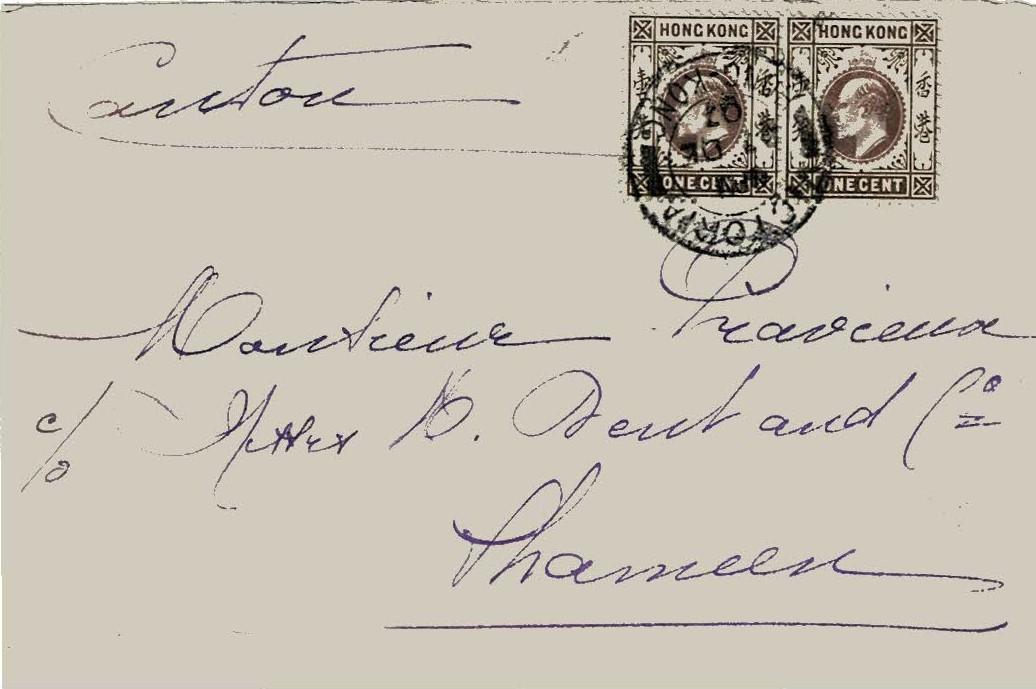 Canton
HONG KONG HONG KONG
壹 香港 香港
ONE CENT ONE CENT
VICTORIA HONG-KONG
DE
07
Monsieur Pravieux
c/o Messrs H. Dent and Co
Shameen